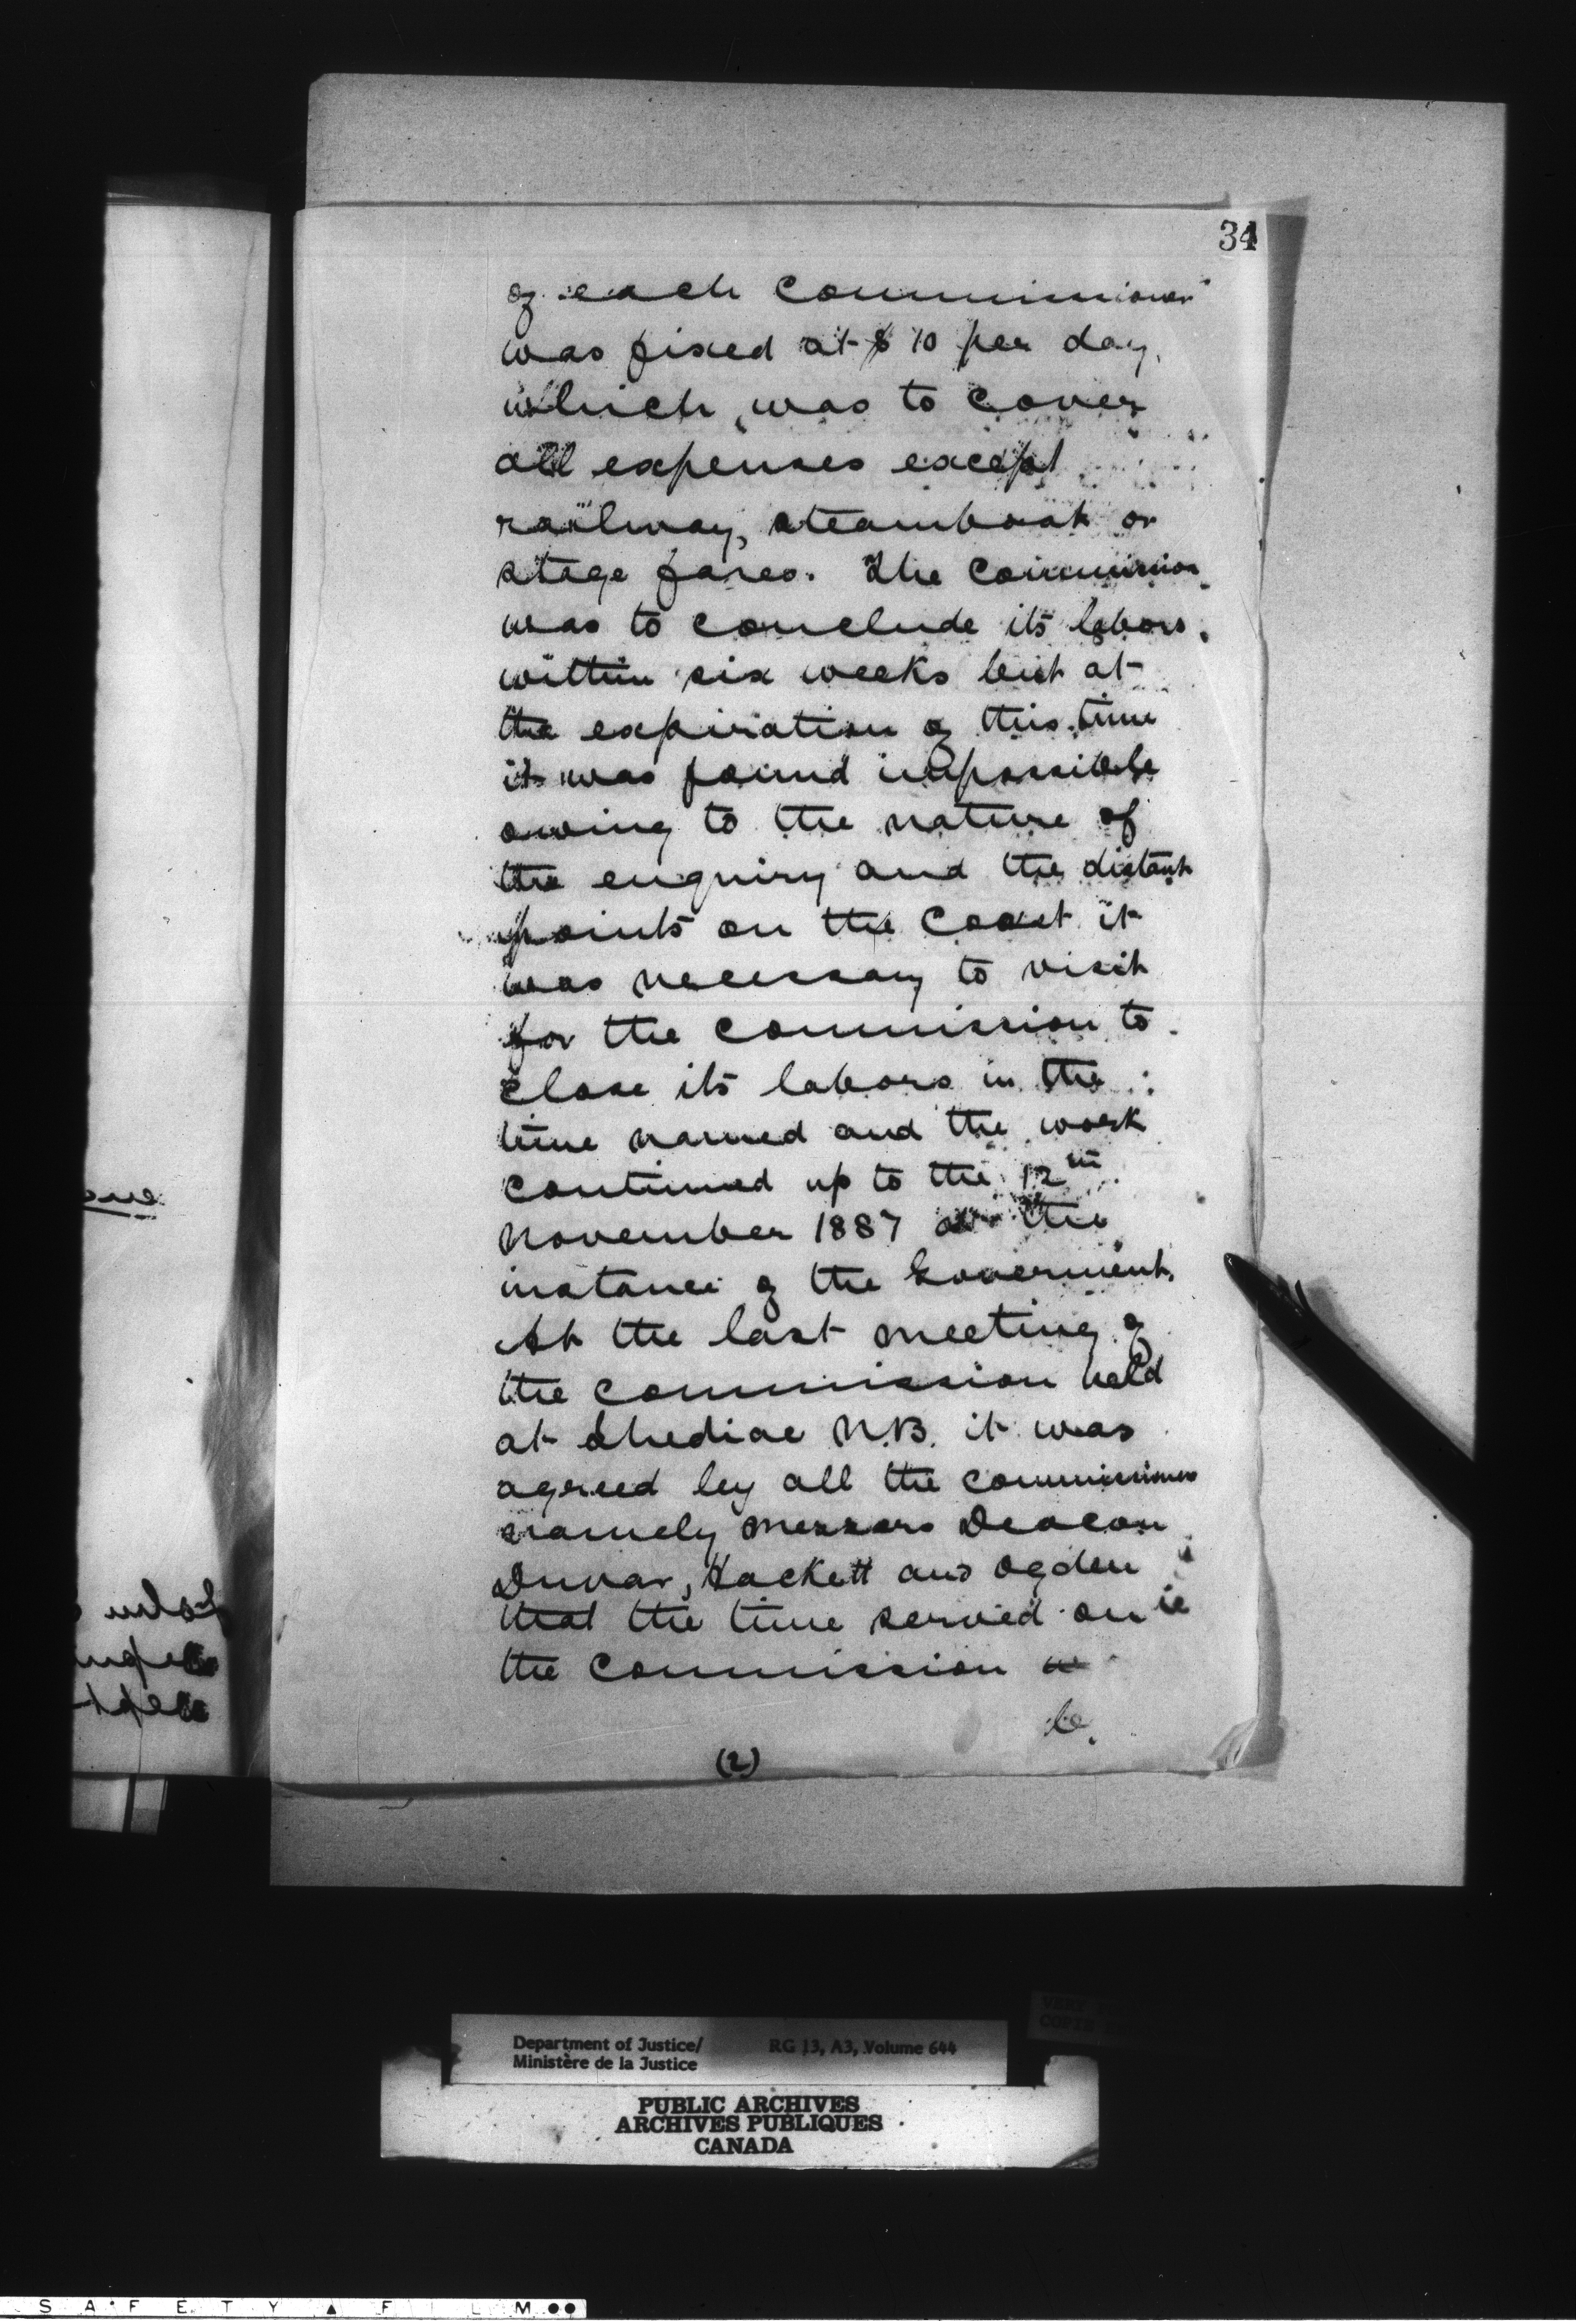 34
of each Commissioner
was fixed at $10 per day,
which was to cover
all expenses except
railway, steamboat or
stage fares. The Commission
was to conclude its labors
within six weeks but at
the expiration of this time
it was found impossible
owing to the nature of
the enquiry and the distant
points on the coast it
was necessary to visit
for the Commission to
close its labors in the
time named and the work
continued up to the 12th
November 1887 at the
instance of the Government.
At the last meeting of
the Commission held
at Shediac N.B. it was
agreed by all the Commissioners
namely Messrs Deacon
Duvar, Hackett and Ogden
that the time served on
the Commission
be
(2)
Department of Justice/
Ministère de la Justice
RG 13, A3, Volume 644
PUBLIC ARCHIVES
ARCHIVES PUBLIQUES
CANADA
S A F E T Y ▲ F I L M ●●